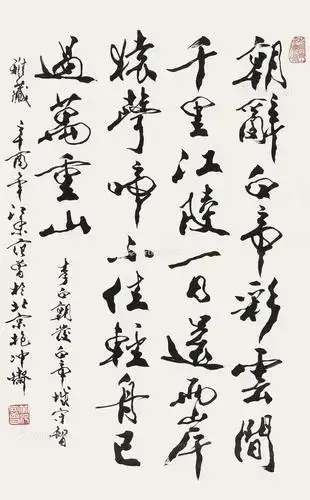 朝辭白帝彩雲間
千里江陵一日還兩岸
猿聲啼不住輕舟已
過萬重山
李白朝發白帝城守智
雅藏 辛酉年江東范曾於北京抱沖齋